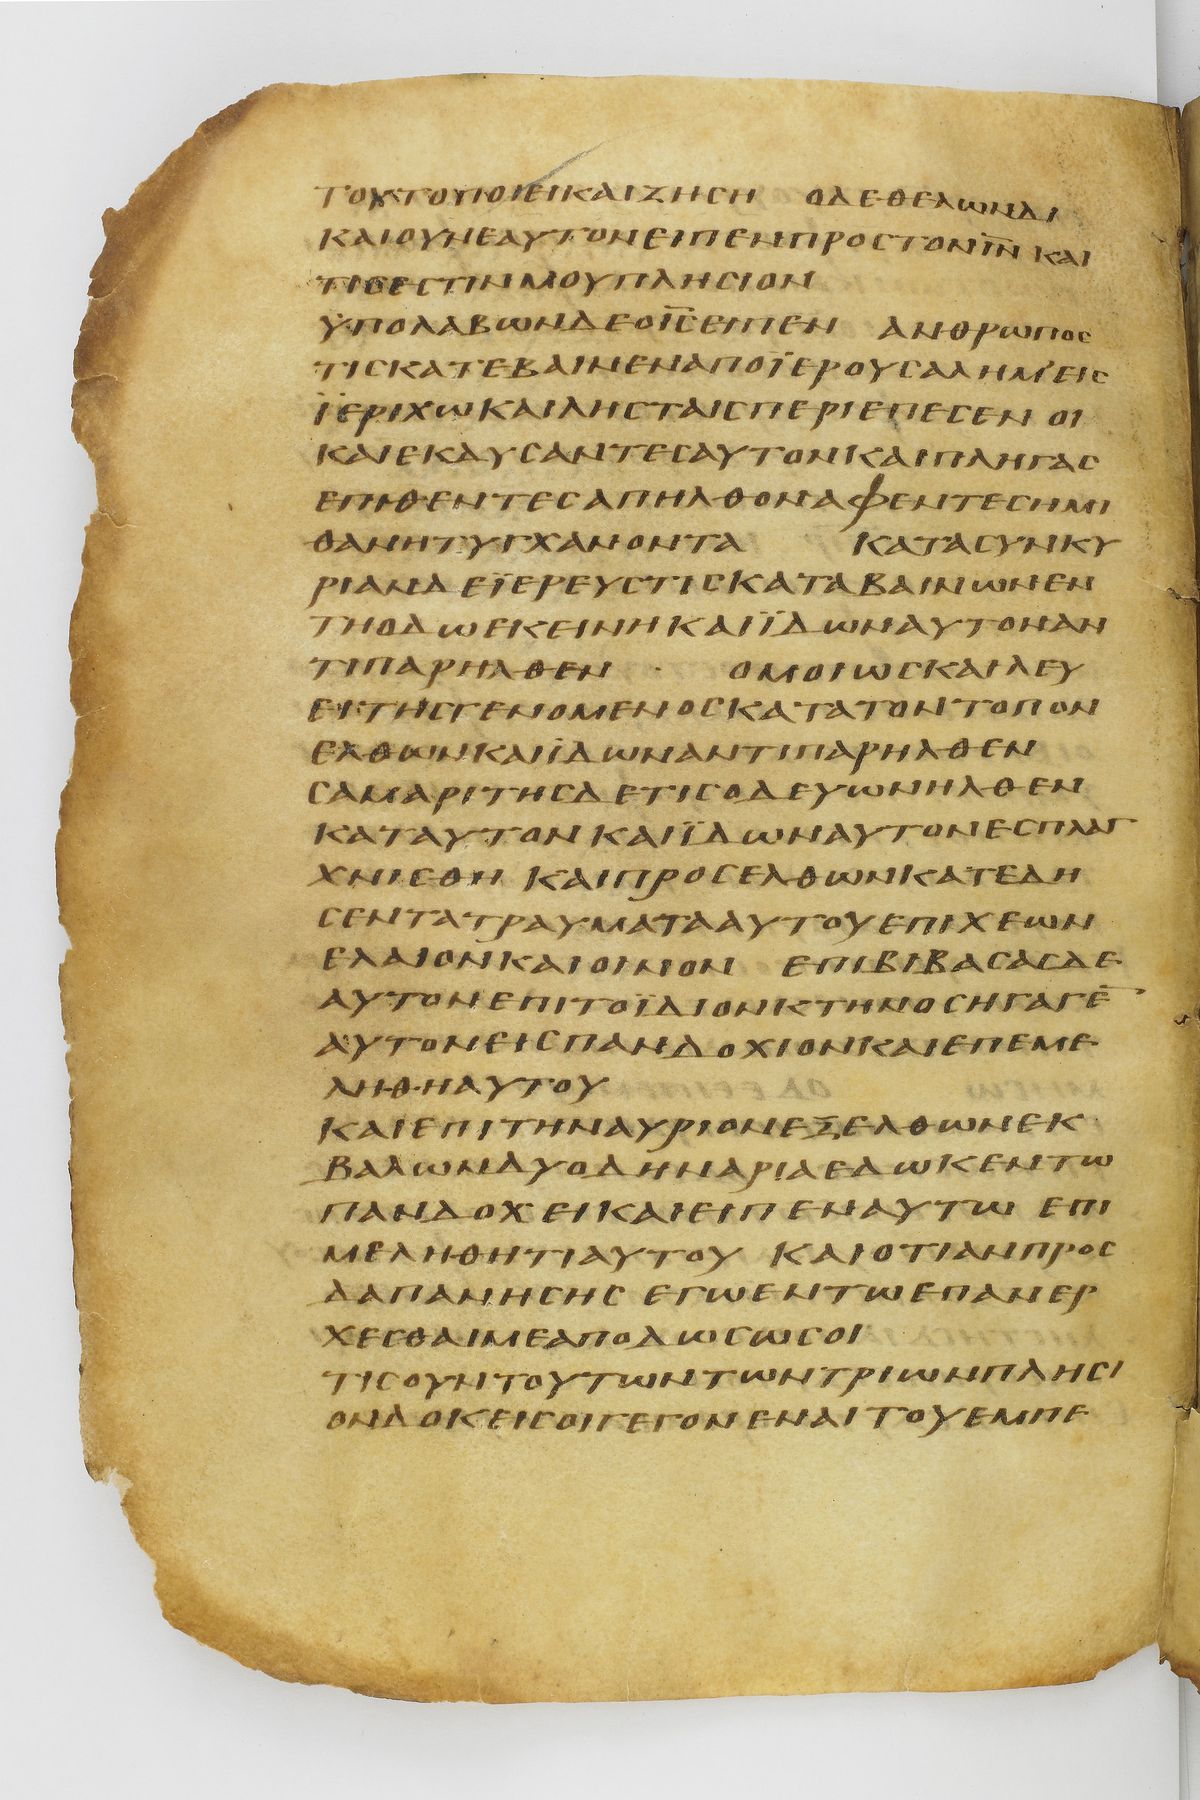 ΤΟΥΤΟΥΠΟΙΕΙΚΑΙΖΗCΗ ΟΔΕΘΕΛΩΝΔΙ
ΚΑΙΟΥΝΕΑΥΤΟΝΕΙΠΕΝΠΡΟCΤΟΝΙ̅Ν̅ ΚΑΙ
ΤΙCΕCΤΙΝΜΟΥΠΛΗCΙΟΝ
ΫΠΟΛΑΒΩΝΔΕΟΙ̅C̅ΕΙΠΕΝ ΑΝΘΡΩΠΟC
ΤΙCΚΑΤΕΒΑΙΝΕΝΑΠΟΪΕΡΟΥCΑΛΗΜʼΕΙC
ΪΕΡΙΧΩΚΑΙΛΗCΤΑΙCΠΕΡΙΕΠΕCΕΝ ΟΙ
ΚΑΙΕΚΔΥCΑΝΤΕCΑΥΤΟΝΚΑΙΠΛΗΓΑC
ΕΠΙΘΕΝΤΕCΑΠΗΛΘΟΝΑΦΕΝΤΕCΗΜΙ
ΘΑΝΗΤΥΓΧΑΝΟΝΤΑ ΚΑΤΑCΥΝΚΥ
ΡΙΑΝΔΕΪΕΡΕΥCΤΙCΚΑΤΑΒΑΙΝΩΝΕΝ
ΤΗΟΔΩΕΚΕΙΝΗΚΑΙΪΔΩΝΑΥΤΟΝΑΝ
ΤΙΠΑΡΗΛΘΕΝ · ΟΜΟΙΩCΚΑΙΛΕΥ
ΕΙΤΗCΓΕΝΟΜΕΝΟCΚΑΤΑΤΟΝΤΟΠΟΝ
ΕΛΘΩΝΚΑΙΪΔΩΝΑΝΤΙΠΑΡΗΛΘΕΝ
CΑΜΑΡΙΤΗCΔΕΤΙCΟΔΕΥΩΝΗΛΘΕΝ
ΚΑΤΑΥΤΟΝΚΑΙΪΔΩΝΑΥΤΟΝΕCΠΛΑΓ
ΧΝΙCΘΗ ΚΑΙΠΡΟCΕΛΘΩΝΚΑΤΕΔΗ
CΕΝΤΑΤΡΑΥΜΑΤΑΑΥΤΟΥΕΠΙΧΕΩΝ
ΕΛΑΙΟΝΚΑΙΟΙΝΟΝ ΕΠΙΒΙΒΑCΑCΔΕ
ΑΥΤΟΝΕΠΙΤΟΪΔΙΟΝΚΤΗΝΟCΗΓΑΓΕ̅
ΑΥΤΟΝΕΙCΠΑΝΔΟΧΙΟΝΚΑΙΕΠΕΜΕ
ΛΗΘΗΑΥΤΟΥ
ΚΑΙΕΠΙΤΗΝΑΥΡΙΟΝΕΞΕΛΘΩΝΕΚ
ΒΑΛΩΝΔΥΟΔΗΝΑΡΙΑΕΔΩΚΕΝΤΩ
ΠΑΝΔΟΧΕΙΚΑΙΕΙΠΕΝΑΥΤΩ ΕΠΙ
ΜΕΛΗΘΗΤΙΑΥΤΟΥ ΚΑΙΟΤΙΑΝΠΡΟC
ΔΑΠΑΝΗCΗC ΕΓΩΕΝΤΩΕΠΑΝΕΡ
ΧΕCΘΑΙΜΕΑΠΟΔΩCΩCΟΙ
ΤΙCΟΥΝΤΟΥΤΩΝΤΩΝΤΡΙΩΝΠΛΗCΙ
ΟΝΔΟΚΕΙCΟΙΓΕΓΟΝΕΝΑΙΤΟΥΕΜΠΕ